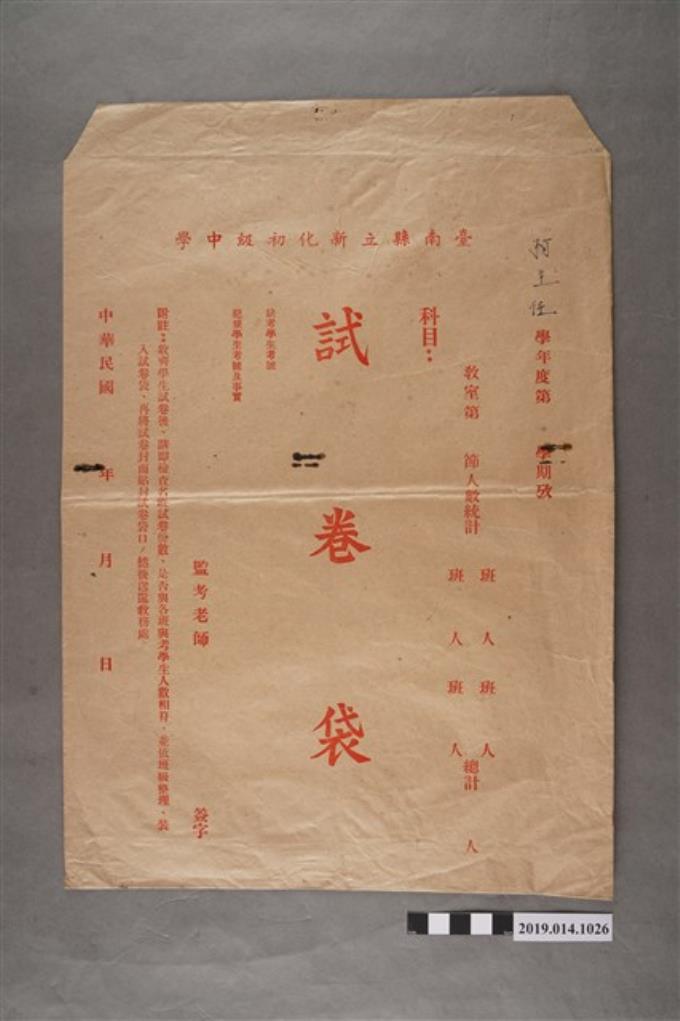 臺南縣立新化初級中學
柯主任
學年度第 學期攷
教室第 節人數統計 班 人 班 人 總計 人
班 人 班 人
科目：
試卷袋
缺考學生考號
犯規學生考號及事實
監考老師 簽字
附註：收齊學生試卷後、請即檢查各班試卷份數、是否與各班與考學生人數相符、並依班級整理、裝
入試卷袋、再將試卷封面黏封試卷袋口、然後送還教務處。
中華民國 年 月 日
2019.014.1026